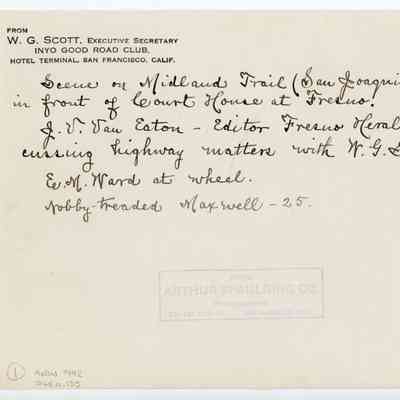 FROM
W. G. SCOTT, EXECUTIVE SECRETARY
INYO GOOD ROAD CLUB,
HOTEL TERMINAL, SAN FRANCISCO, CALIF.
Scene on Midland Trail (San Joaqui
in front of Court House at Fresno.
J. V. Van Eaton - Editor Fresno Heral
cussing highway matters with W. G. S
E. M. Ward at wheel.
Nobby-treaded Maxwell - 25.
ARTHUR SPAULDING CO.
1